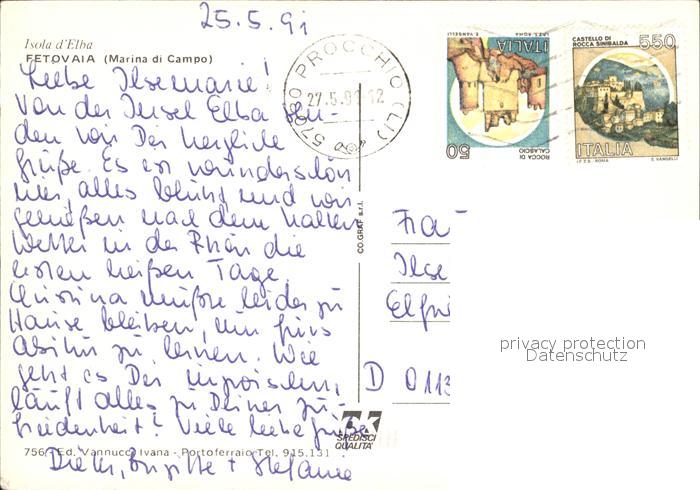 25.5.91
Isola d'Elba
FETOVAIA (Marina di Campo)
Liebe Ilsemarie!
Von der Insel Elba sen-
den wir Dir herzliche
Grüße. Es ist wunderschön
hier, alles blüht und wir
genießen nach dem kalten
Wetter in der Rhön die
ersten heißen Tage.
Christina mußte leider zu
Hause bleiben, um fürs
Abitur zu lernen. Wie
geht es Dir inzwischen,
läuft alles zu Deiner Zu-
friedenheit? Viele liebe Grüße
Dieter, Brigitte + Stefanie
756 - Ed. Vannucci Ivana - Portoferraio Tel. 915.131
CO.GRAF s.r.l.
57030 PROCCHIO (LI)
27.5.91-12
I.P.Z.S. ROMA E. VANGELLI
ITALIA
ROCCA DI
CALASCIO
50
CASTELLO DI
ROCCA SINIBALDA
550
ITALIA
I.P.Z.S. - ROMA E. VANGELLI
Frau
Ilse
Elfri
D 0113
privacy protection
Datenschutz
SPEDISCI
QUALITA'